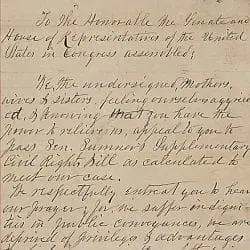 To The Honorable the Senate and
House of Representatives of the United
States in Congress assembled;
We, the undersigned, Mothers,
wives & Sisters, feeling ourselves aggriev
ed, & Knowing that you have the
power to relieve us, appeal to you to
pass Sen. Sumner's Supplementary
Civil Rights Bill as calculated to
meet our case.
We respectfully entreat you to hear
our prayer; for, we suffer indigni
ties in public conveyances, we are
deprived of privileges & advantages